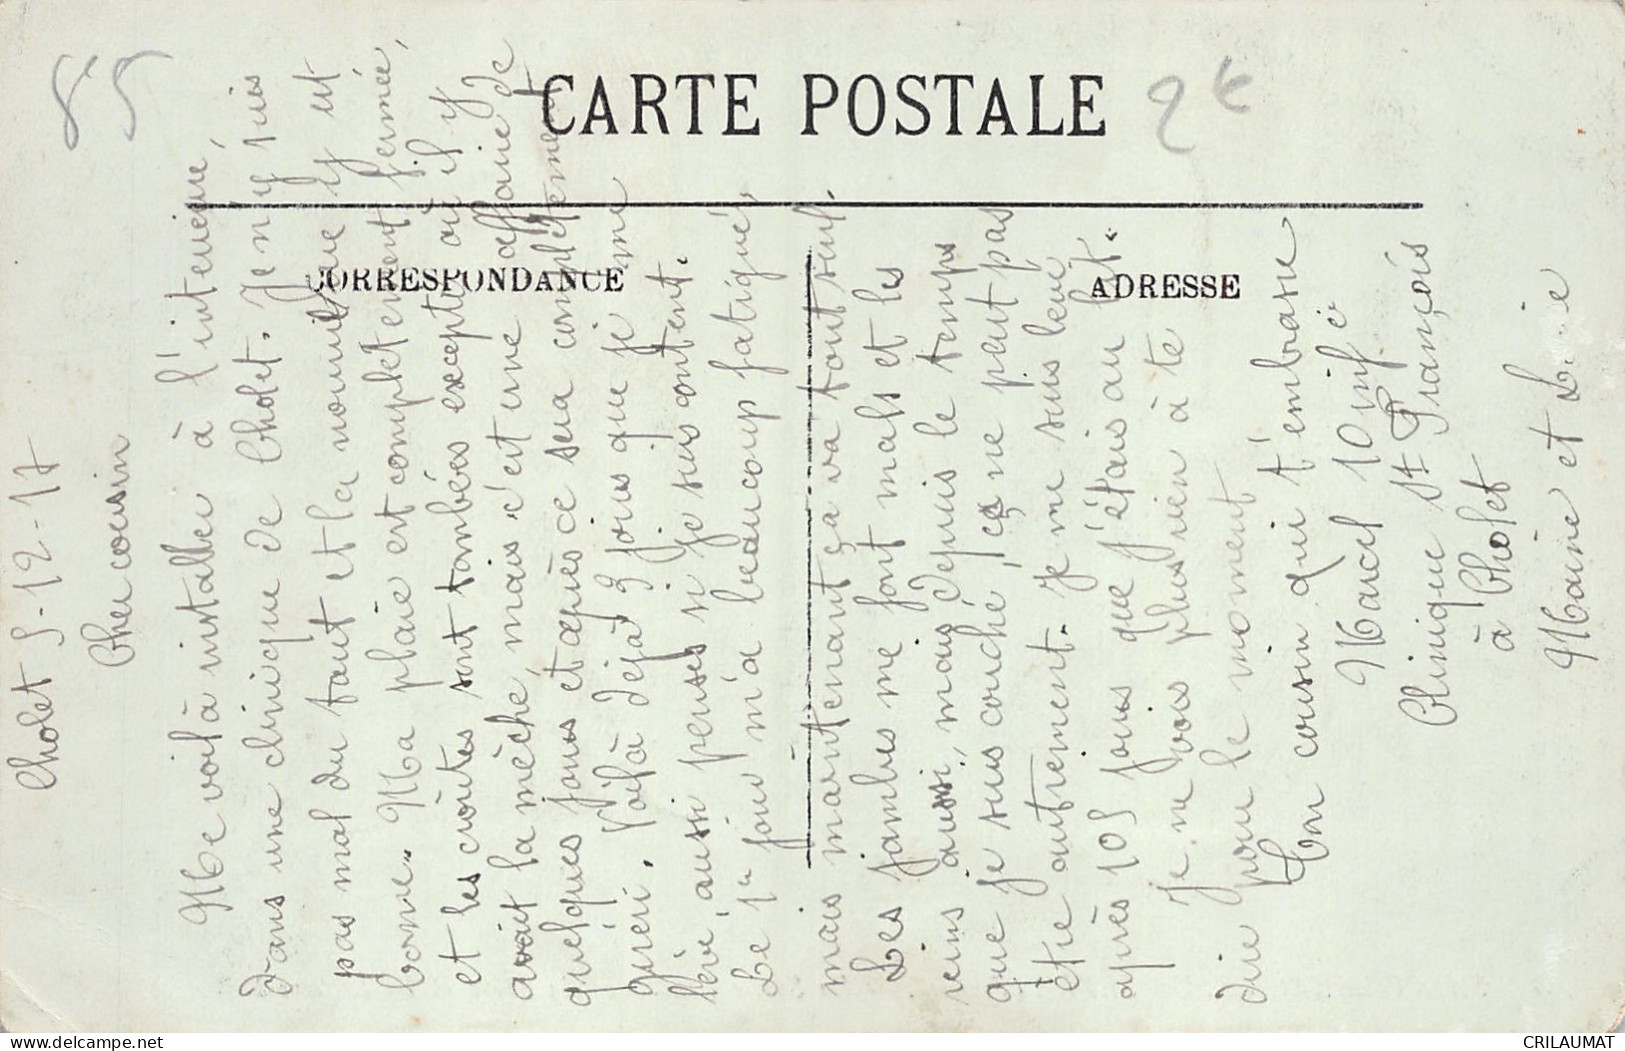 85
2€
CARTE POSTALE
CORRESPONDANCE
ADRESSE
Cholet 5-12-17
Cher cousin
Me voilà installer à l'interieure,
dans une clinique de Cholet. Je n'y suis
pas mal du tout et la nourriture y est
bonne. Ma plaie est completement fermée,
et les croûtes sont tombées excepté où il y
avait la mèche, mais c'est une affaire de
quelques jours et après ce sera complètement
guéri. Voilà déjà 3 jours que je me
lève aussi penses si je suis content.
Le 1er jour m'a beaucoup fatigué,
mais maintenant ça va tout seul.
Les jambes me font mals et les
reins aussi, mais depuis le temps
que je suis couché, ça ne peut pas
être autrement. Je me suis levé
après 105 jours que j'étais au lit.
Je ne vois plus rien à te
dire pour le moment
Ton cousin qui t'embrasse
Marcel 10 infie
Clinique St François
à Cholet
Maine et L. ie
www.delcampe.net
CRILAUMAT